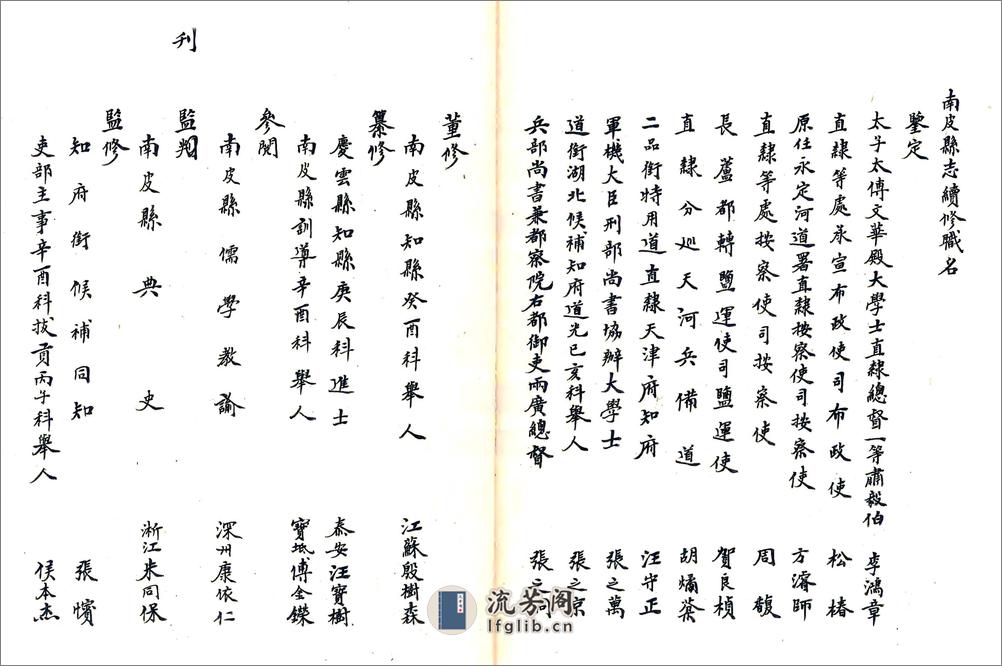 南皮縣志續修職名
鑒定
太子太傅文華殿大學士直隸總督一等肅毅伯 李鴻章
直隸等處承宣布政使司布政使 松椿
原任永定河道署直隸按察使司按察使 方濬師
直隸等處按察使司按察使 周馥
長蘆都轉鹽運使司鹽運使 賀良楨
直隸分巡天河兵備道 胡燏棻
二品銜特用道直隸天津府知府 汪守正
軍機大臣刑部尚書協辦大學士 張之萬
道銜湖北候補知府道光己亥科舉人 張之京
兵部尚書兼都察院右都御吏兩廣總督 張之洞
董修
南皮縣知縣癸酉科舉人 江蘇殷樹森
纂修
慶雲縣知縣庚辰科進士 泰安汪寶樹
南皮縣訓導辛酉科舉人 寶坻傅金鑅
參閱
南皮縣儒學教諭 深州康依仁
監刊
南皮縣典史 淅江朱同保
監修
知府銜候補同知 張
吏部主事辛酉科拔貢丙午科舉人 侯本杰
刊
流芳阁
lfglib.cn